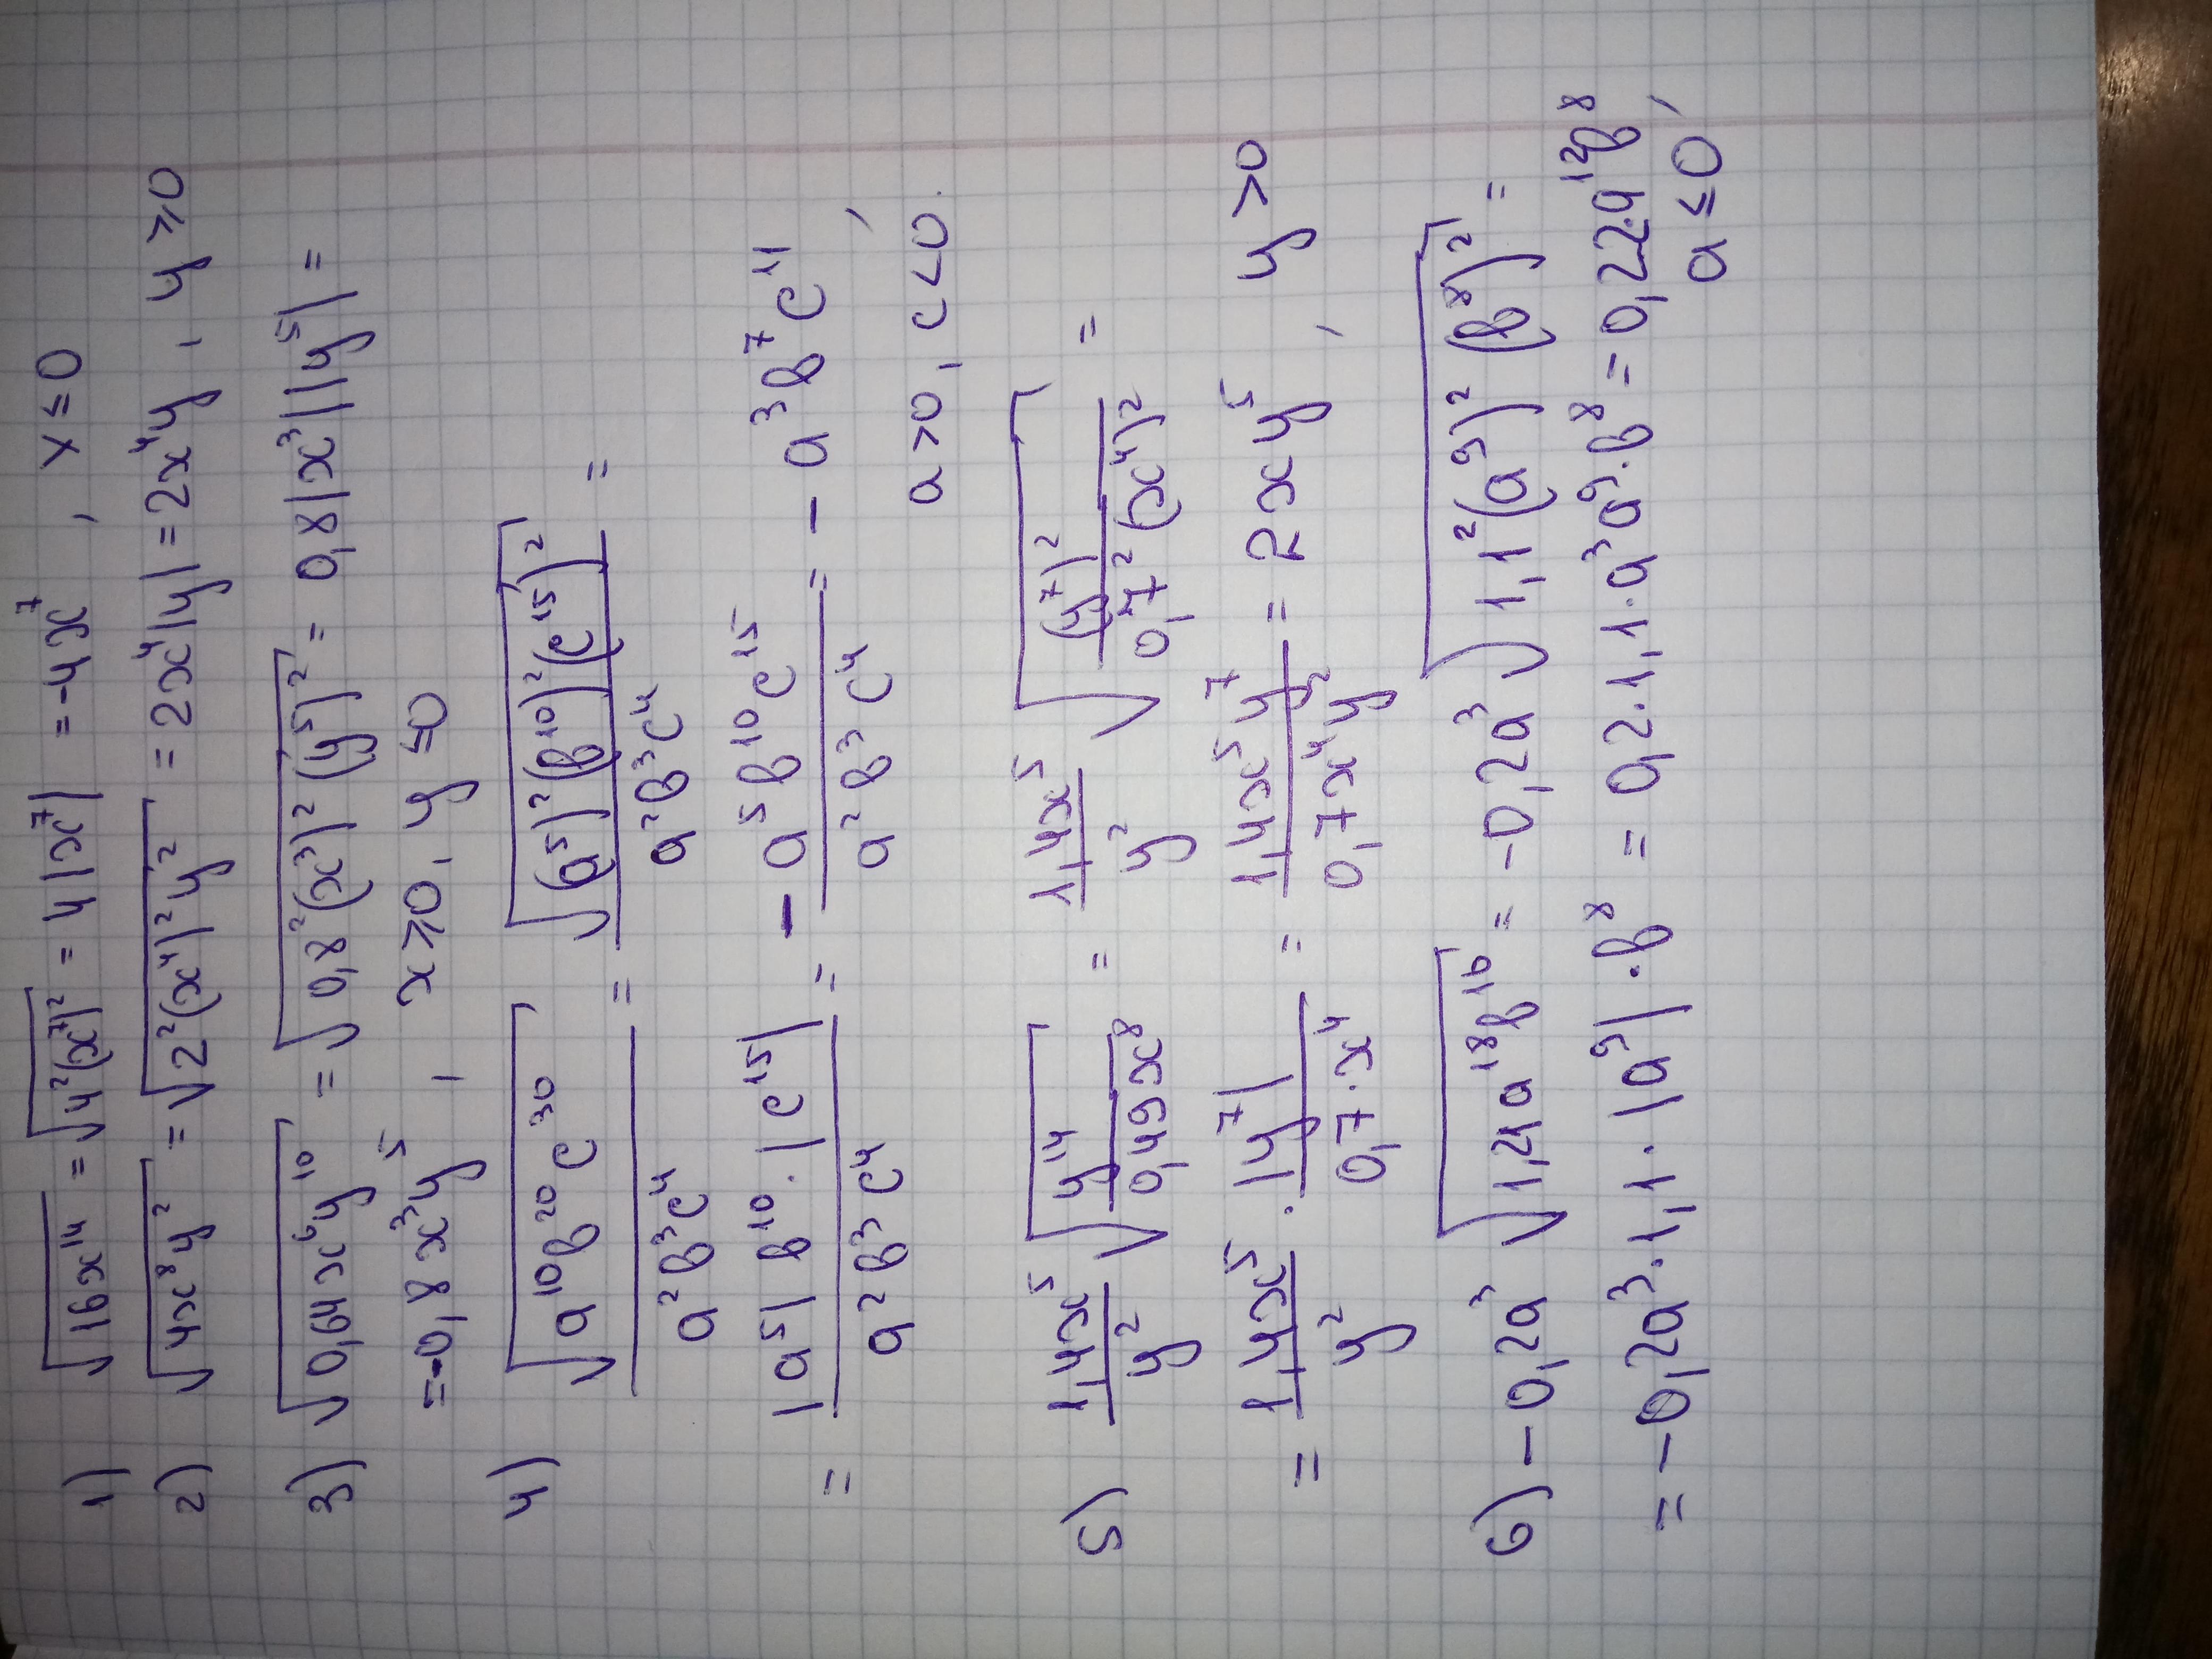 1) √(16x¹⁴) = √(4²(x⁷)²) = 4|x⁷| = -4x⁷, x ≤ 0
2) √(4x⁸y²) = √(2²(x⁴)²y²) = 2x⁴|y| = 2x⁴y, y ≥ 0
3) √(0,64x⁶y¹⁰) = √(0,8²(x³)²(y⁵)²) = 0,8|x³||y⁵| =
= -0,8x³y⁵, x ≥ 0, y ≤ 0
4) √(a¹⁰b²⁰c³⁰) / (a²b³c⁴) = √((a⁵)²(b¹⁰)²(c¹⁵)²) / (a²b³c⁴) =
= |a⁵| b¹⁰ · |c¹⁵| / (a²b³c⁴) = - a⁵b¹⁰c¹⁵ / (a²b³c⁴) = - a³b⁷c¹¹,
a > 0, c < 0.
5) 1,4x⁵/y² √(y¹⁴/(0,49x⁸)) = 1,4x⁵/y² √((y⁷)²/(0,7²(x⁴)²)) =
= 1,4x⁵/y² · |y⁷|/(0,7·x⁴) = 1,4x⁵y⁷/(0,7x⁴y²) = 2xy⁵, y > 0
6) -0,2a³ √(1,21a¹⁸b¹⁶) = -0,2a³ √(1,1²(a⁹)²(b⁸)²) =
= -0,2a³·1,1·|a⁹|·b⁸ = 0,2·1,1·a³a⁹·b⁸ = 0,22a¹²b⁸,
a ≤ 0